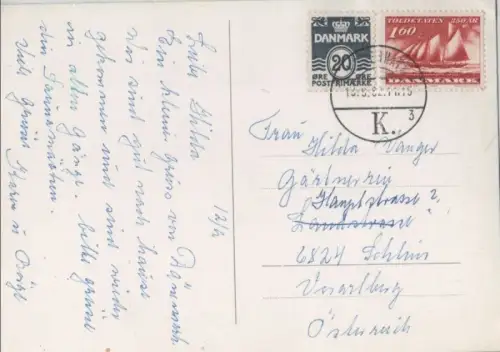 12/2
Liebe Hilda
Ein kleine Gruss von Dänmark
Wir sind gut nach hause
gekommen und sind wieder
in alten Gänge. bitte grüsse
den
Viele Grüsse Karen u Börge
DANMARK
20
ØRE ØRE
POSTFRIMÆRKE
TOLDETATEN 350 ÅR
1.60
DANMARK
K. 3
Frau Hilda Wanger
Gärtnerein
Hauptstrasse 2
Landstrasse
6824 Schlins
Vorarlberg
Österreich